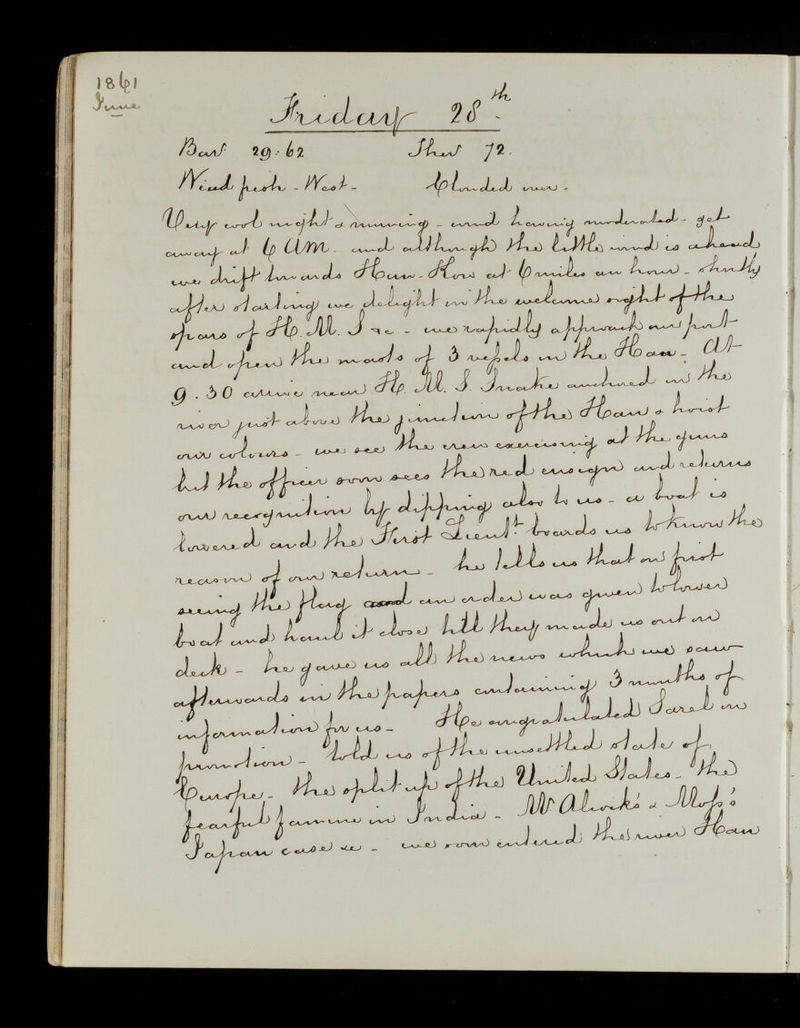 1861
June
Friday 28th.
Barr 29.62 Ther 72.
Wind fresh - West - Clouded over -
Very cool night & morning - wind having moderated - get
away at 6 AM - and although the little wind is ahead
we drift towards Han-Kow at 6 miles an hour - shortly
after starting we delight in the welcome sight of the
spars of H. M. S &c - we rapidly approach our port
and open the masts of 3 vessels in the Han - At
9.30 arrive near H. M. S. Snake anchored in the
river just above the junction of the Han & hoist
our colours - we see the crew exercising at the guns
but the officer soon sees the red ensign and returns
our recognition by dipping also to us - a boat is
lowered and the First Lieut boards us to know the
reason of our return - he tells us that on first
seeing the flag and an order was given to lower
boat and haul it close till they made us out on
deck - he gave us all the news which we saw
afterwards in the papers containing 3 months of
information for us - He congratulated Sarel on
promotion - told us of the unsettled state of
Europe - the split up of the United States - the
fearful famine in India - Mr Alcock's & Moss's
Japan case &c - we soon entered the river Han